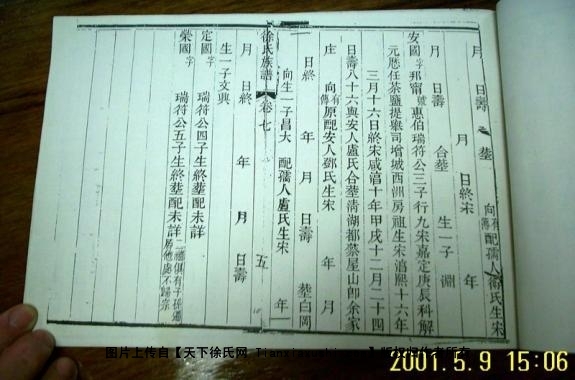 月 日壽 葬 向有傳配孺人衛氏生宋
月 日終宋 年
月 日壽 合葬 生一子淵
安國字邦甯號惠伯瑞符公三子行九宋嘉定庚長科解
元歷任茶鹽提舉司增城西洲房祖生宋淳熙十六年
三月十六日終宋咸淳十年甲戌十二月二十四
日壽八十六與安人盧氏合葬清湖都蔡屋山即余家
庄 向有傳原配安人鄧氏生宋 年 月
日終 年 月 日壽 葬白岡
向生一子昌大 配孺人盧氏生宋 年
徐氏族譜 卷七 五
月 日終 年 月 日壽
生一子文興
定國字 瑞符公四子生終葬配未詳
榮國字 瑞符公五子生終葬配未詳二禰俱有子孫遷房他處不歸宗
图片上传自【天下徐氏网 】版权归作者所有
2001.5.9 15:06